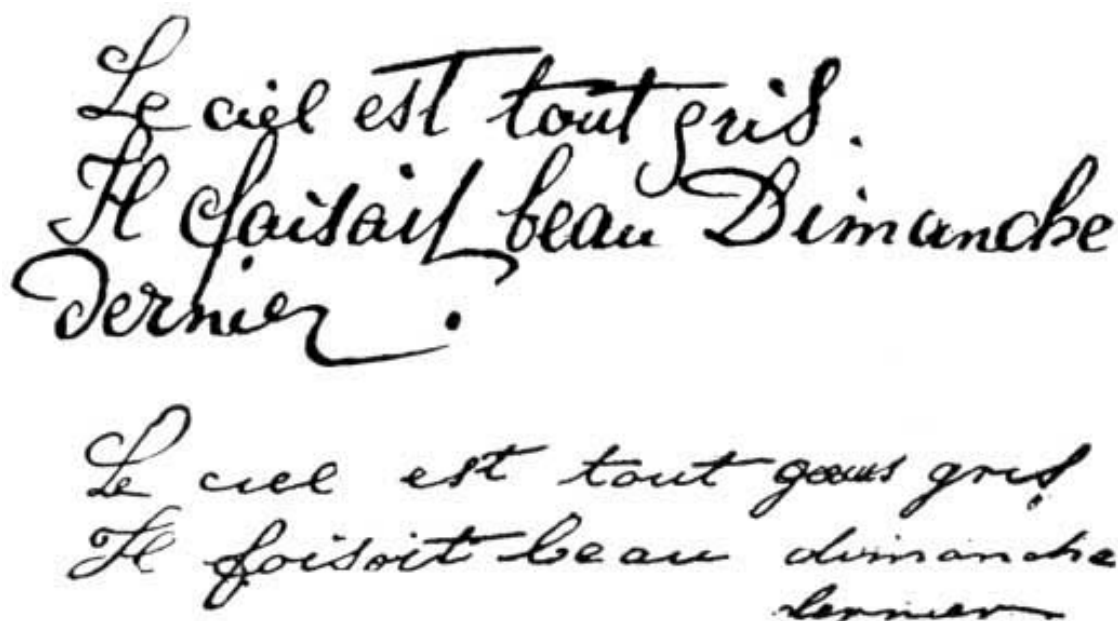 Le ciel est tout gris.
Il faisait beau Dimanche
dernier.
Le ciel est tout gris
Il faisait beau dimanche
dernier